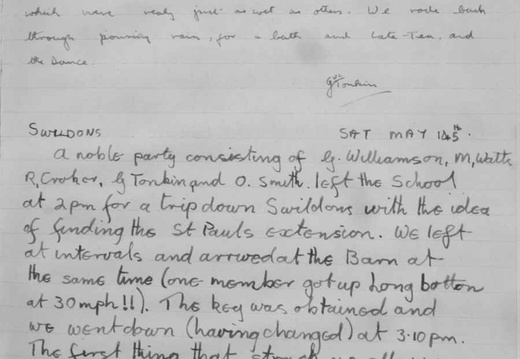 which have really just as wet as others. We rode back
through pouring rain, for a bath and Late-Tea, and
the Dance.
G Tonkin
SWILDONS SAT MAY 145th.
A noble party consisting of G. Williamson, M, Watts
R, Croker, G Tonkin and O. Smith. left the School
at 2pm for a trip down Swildons with the idea
of finding the St Pauls extension. We left
at intervals and arrived at the Barn at
the same time (one member got up Long botton
at 30 mph!!). The key was obtained and
we went down (having changed) at 3.10 pm.
The first thing that